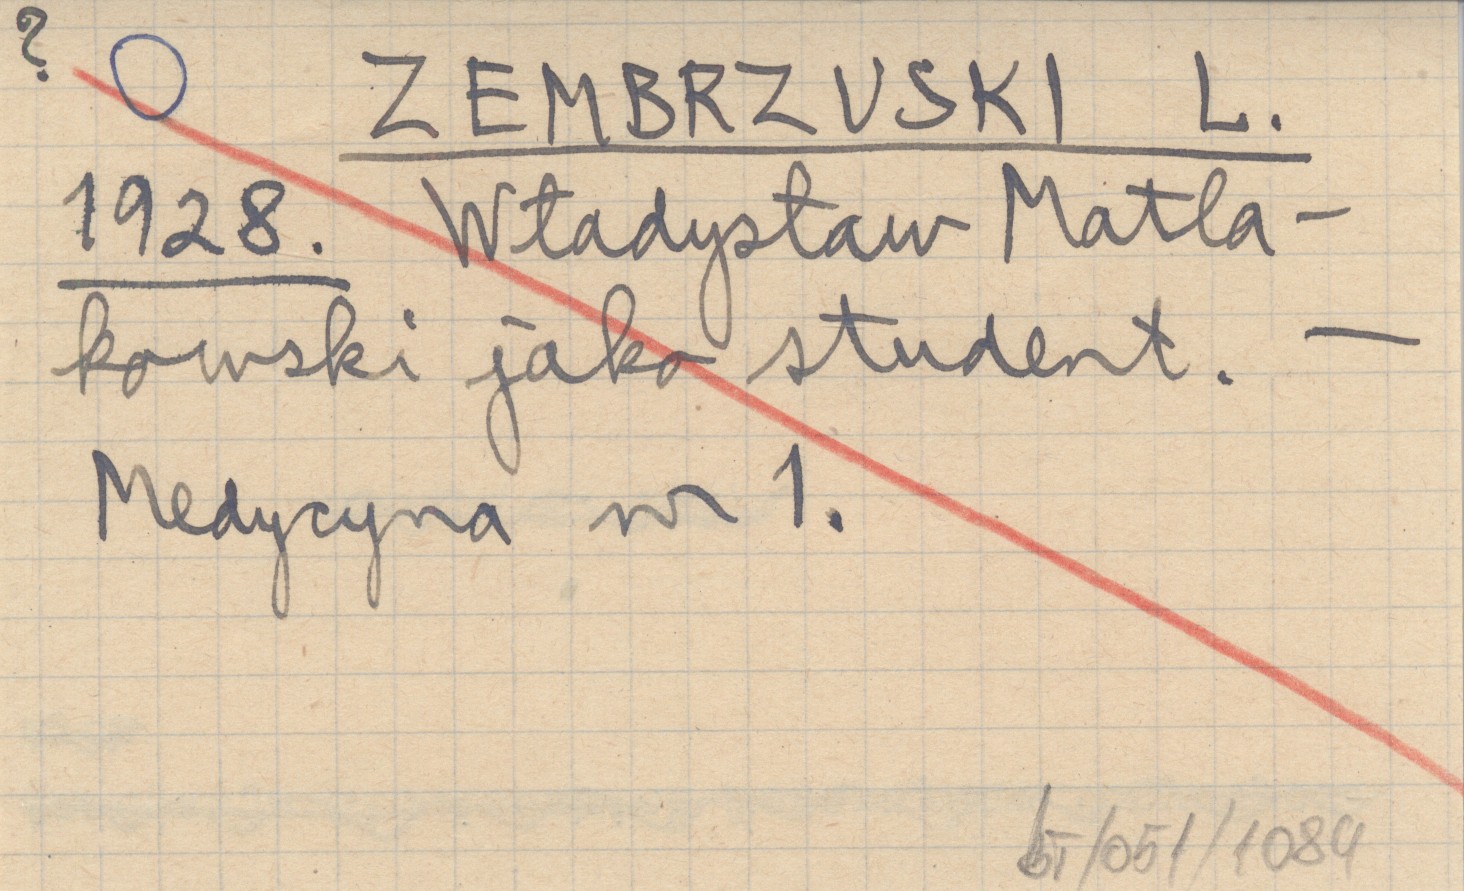 ?
ZEMBRZUSKI L.
1928. Władysław Matla-
kowski jako student. —
Medycyna nr 1.
/051/1084